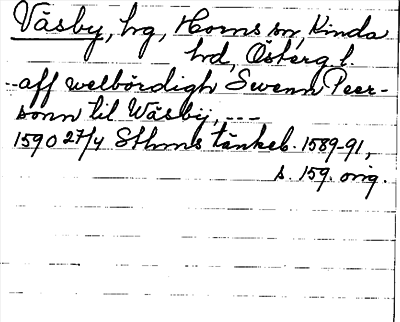 Väsby, hg, Horns sn, Kinda
hd, Österg. l.
--aff welbördigh Swenn Peer-
sonn til Wäsbÿ, ---
1590 27/4 Sthms tänkeb. 1589-91,
s. 159. orig.